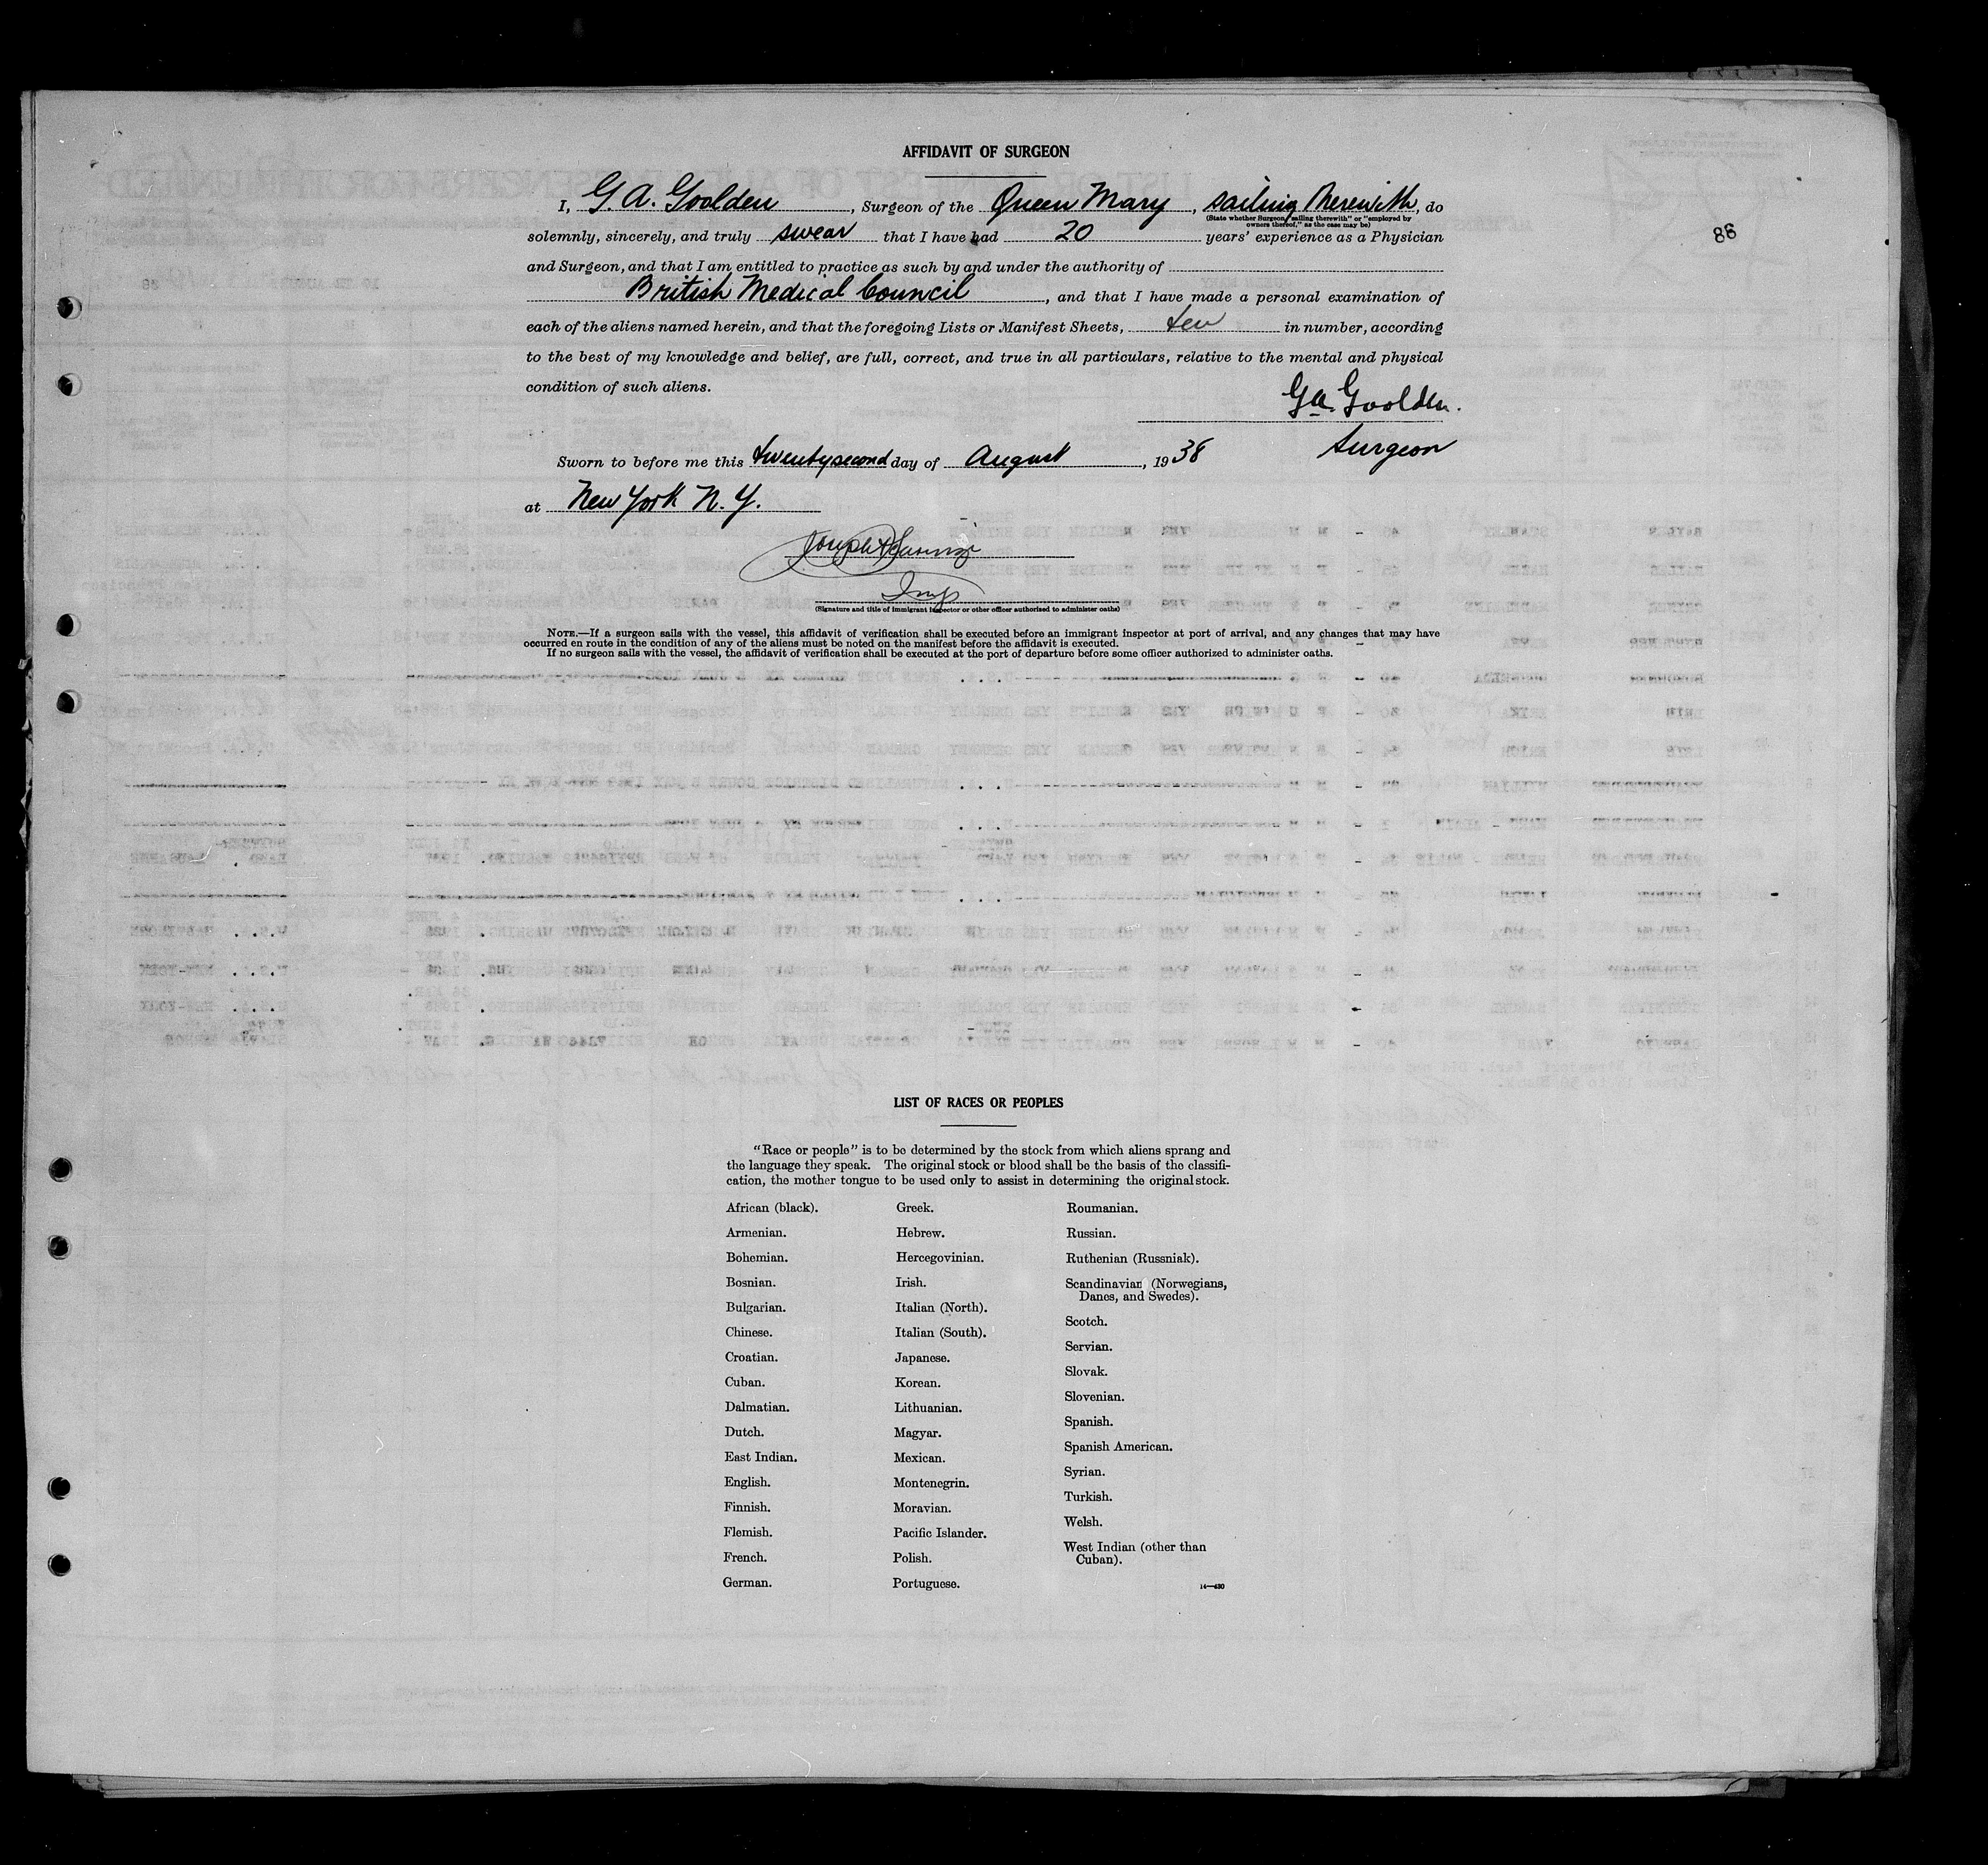 AFFIDAVIT OF SURGEON
I, G. A. Goolden, Surgeon of the Queen Mary, sailing therewith, do
(State whether Surgeon "sailing therewith" or "employed by
owners thereof," as the case may be)
solemnly, sincerely, and truly swear that I have had 20 years' experience as a Physician
88
and Surgeon, and that I am entitled to practice as such by and under the authority of
British Medical Council, and that I have made a personal examination of
each of the aliens named herein, and that the foregoing Lists or Manifest Sheets, ten in number, according
to the best of my knowledge and belief, are full, correct, and true in all particulars, relative to the mental and physical
condition of such aliens.
G.A. Goolden.
Surgeon
Sworn to before me this twenty second day of August, 1938
at New York N. Y.
Insp
(Signature and title of immigrant inspector or other officer authorized to administer oaths)
NOTE.—If a surgeon sails with the vessel, this affidavit of verification shall be executed before an immigrant inspector at port of arrival, and any changes that may have
occurred en route in the condition of any of the aliens must be noted on the manifest before the affidavit is executed.
If no surgeon sails with the vessel, the affidavit of verification shall be executed at the port of departure before some officer authorized to administer oaths.
LIST OF RACES OR PEOPLES
"Race or people" is to be determined by the stock from which aliens sprang and
the language they speak. The original stock or blood shall be the basis of the classifi-
cation, the mother tongue to be used only to assist in determining the original stock.
African (black).
Armenian.
Bohemian.
Bosnian.
Bulgarian.
Chinese.
Croatian.
Cuban.
Dalmatian.
Dutch.
East Indian.
English.
Finnish.
Flemish.
French.
German.
Greek.
Hebrew.
Hercegovinian.
Irish.
Italian (North).
Italian (South).
Japanese.
Korean.
Lithuanian.
Magyar.
Mexican.
Montenegrin.
Moravian.
Pacific Islander.
Polish.
Portuguese.
Roumanian.
Russian.
Ruthenian (Russniak).
Scandinavian (Norwegians,
Danes, and Swedes).
Scotch.
Servian.
Slovak.
Slovenian.
Spanish.
Spanish American.
Syrian.
Turkish.
Welsh.
West Indian (other than
Cuban).
14—430